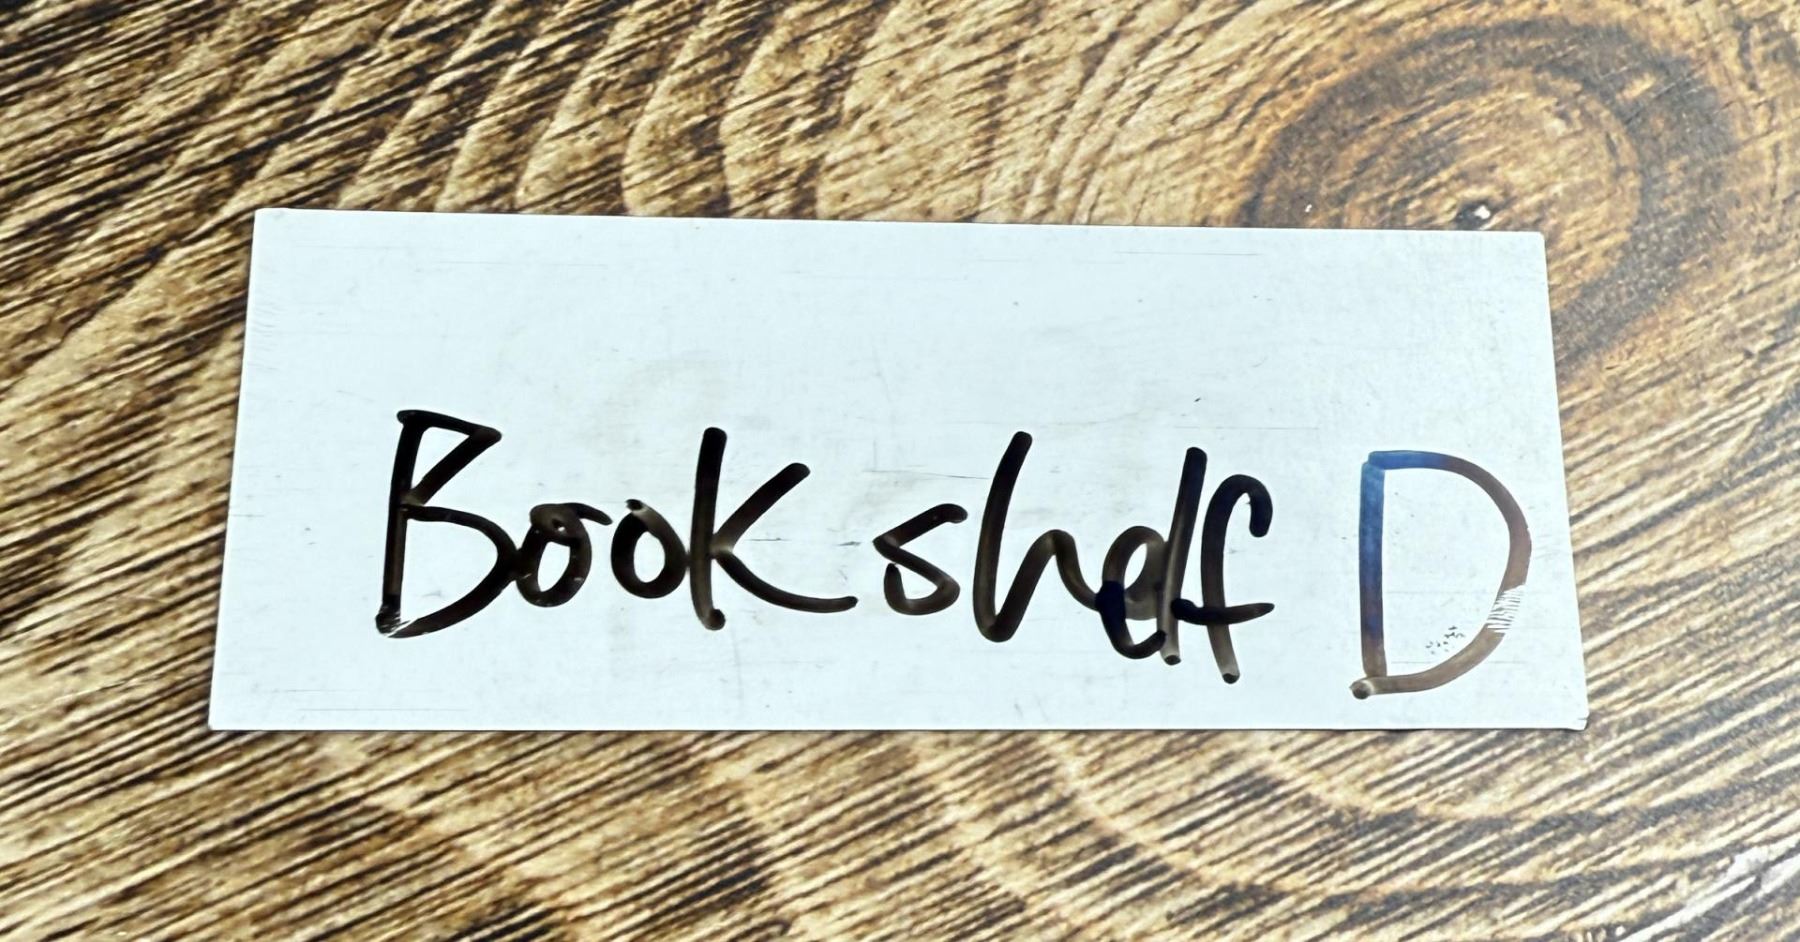 Bookshelf D